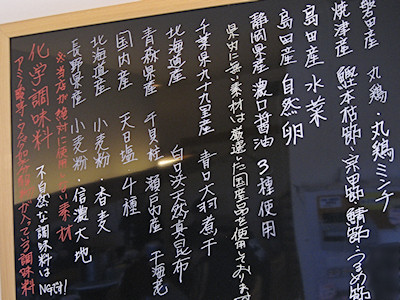 磐田産 丸鶏・丸鶏ミンチ
焼津産 鰹本枯節・宗田節 鯖節・うるめ節
島田産 水菜
島田産 自然卵
静岡県産 濃口醤油 3種使用
県内に無い素材は厳選した国産品を使用しております
千葉県九十九里産 青口大羽煮干
北海道産 白口浜天然真昆布
青森県産 干貝柱・瀬戸内産 干海老
国内産 天日塩 4種
北海道産 小麦粉 香麦
長野県産 小麦粉 信濃大地
※当店が絶対に使用しない素材
化学調味料 不自然な調味料はNGです!